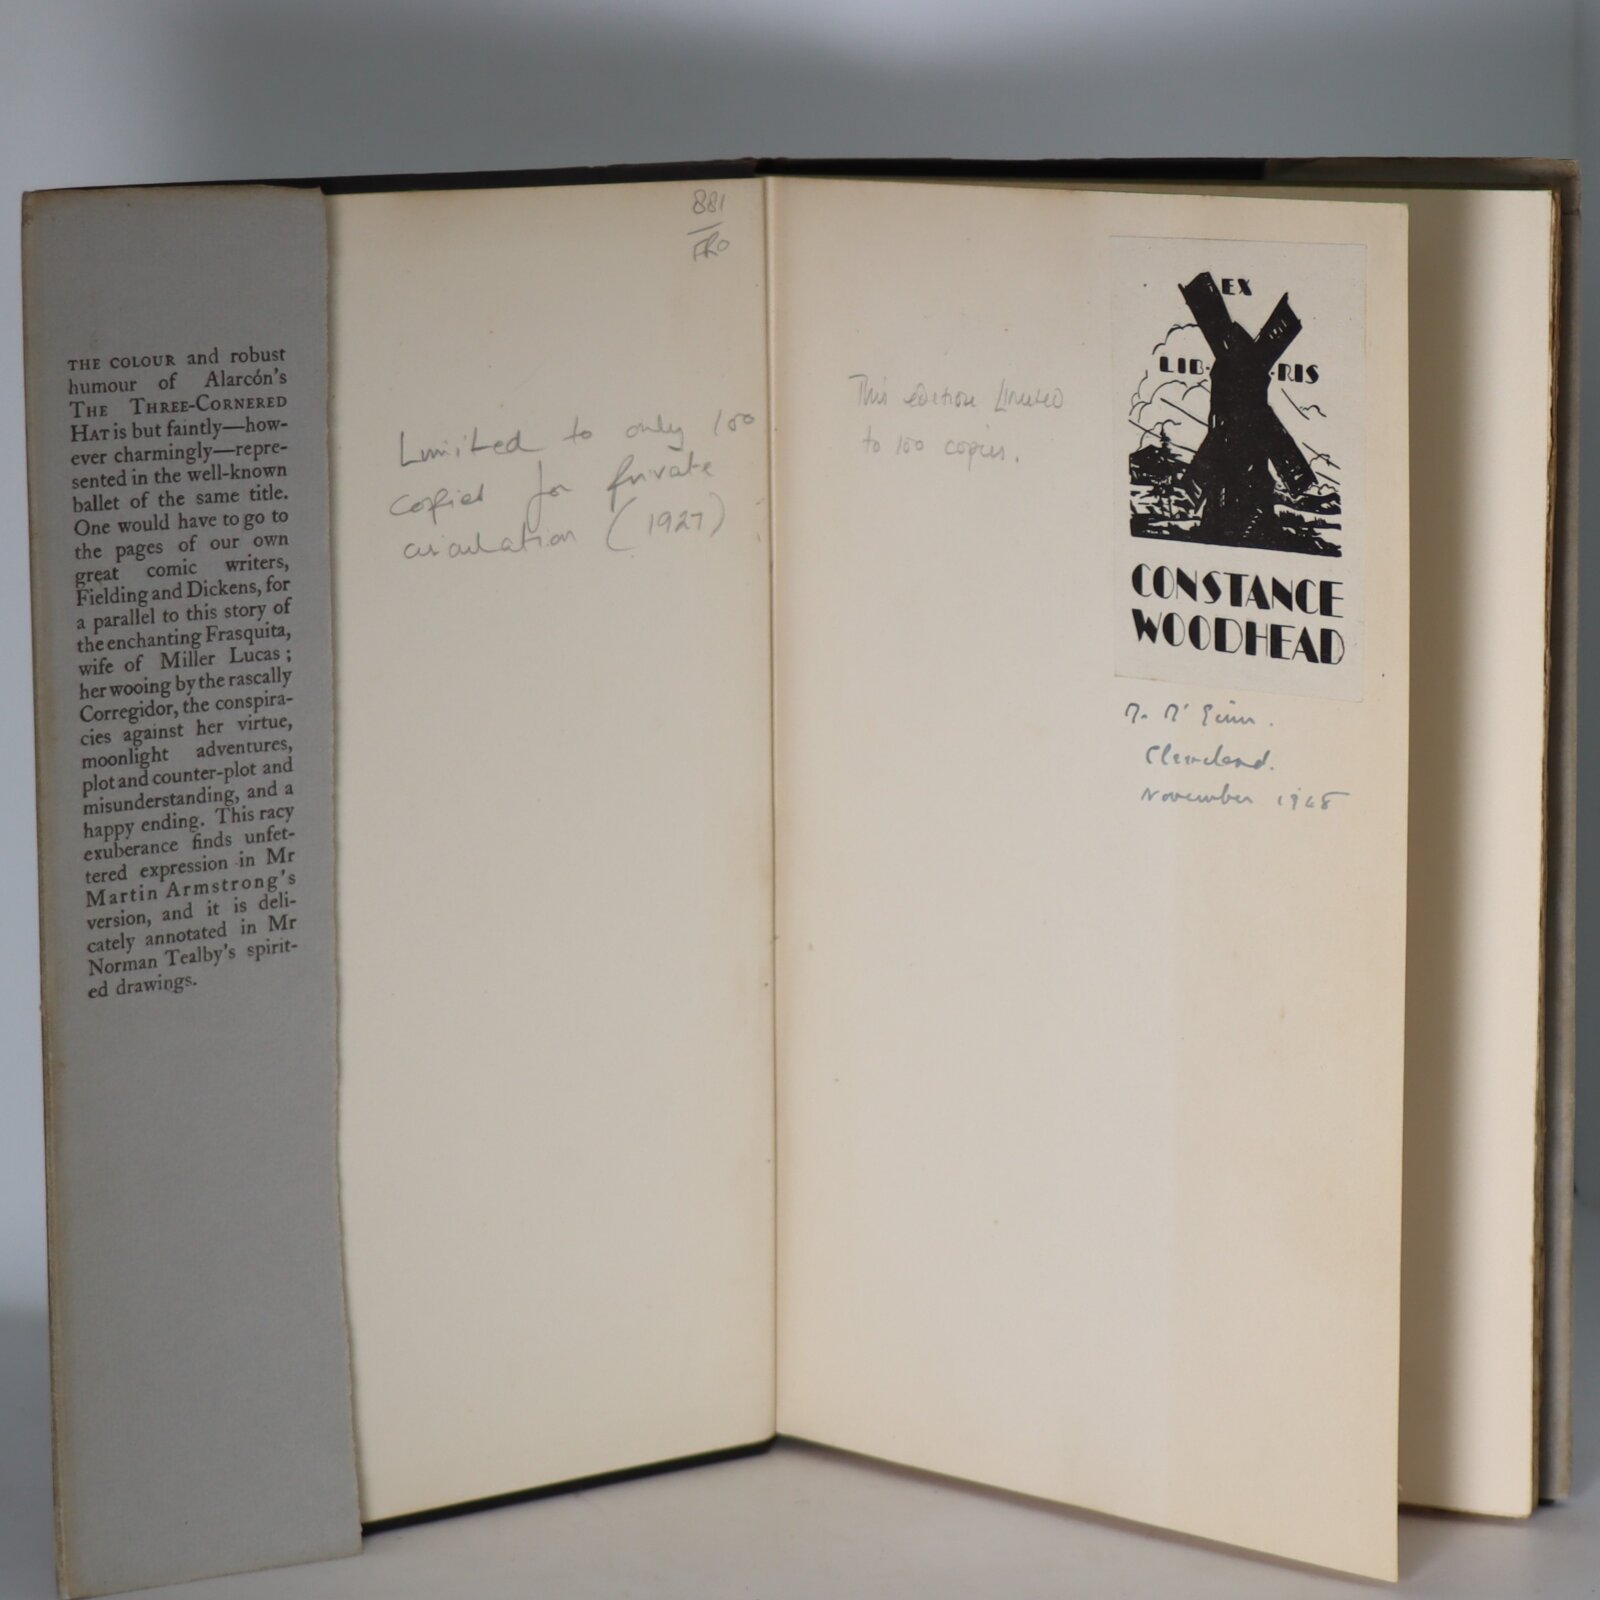 THE COLOUR and robust
humour of Alarcón's
THE THREE-CORNERED
HAT is but faintly—how-
ever charmingly—repre-
sented in the well-known
ballet of the same title.
One would have to go to
the pages of our own
great comic writers,
Fielding and Dickens, for
a parallel to this story of
the enchanting Frasquita,
wife of Miller Lucas;
her wooing by the rascally
Corregidor, the conspira-
cies against her virtue,
moonlight adventures,
plot and counter-plot and
misunderstanding, and a
happy ending. This racy
exuberance finds unfet-
tered expression in Mr
Martin Armstrong's
version, and it is deli-
cately annotated in Mr
Norman Tealby's spirit-
ed drawings.
881
Limited to only 100
copies for private
circulation (1927)
This edition limited
to 100 copies.
EX
LIB-RIS
CONSTANCE
WOODHEAD
Cleveland.
November